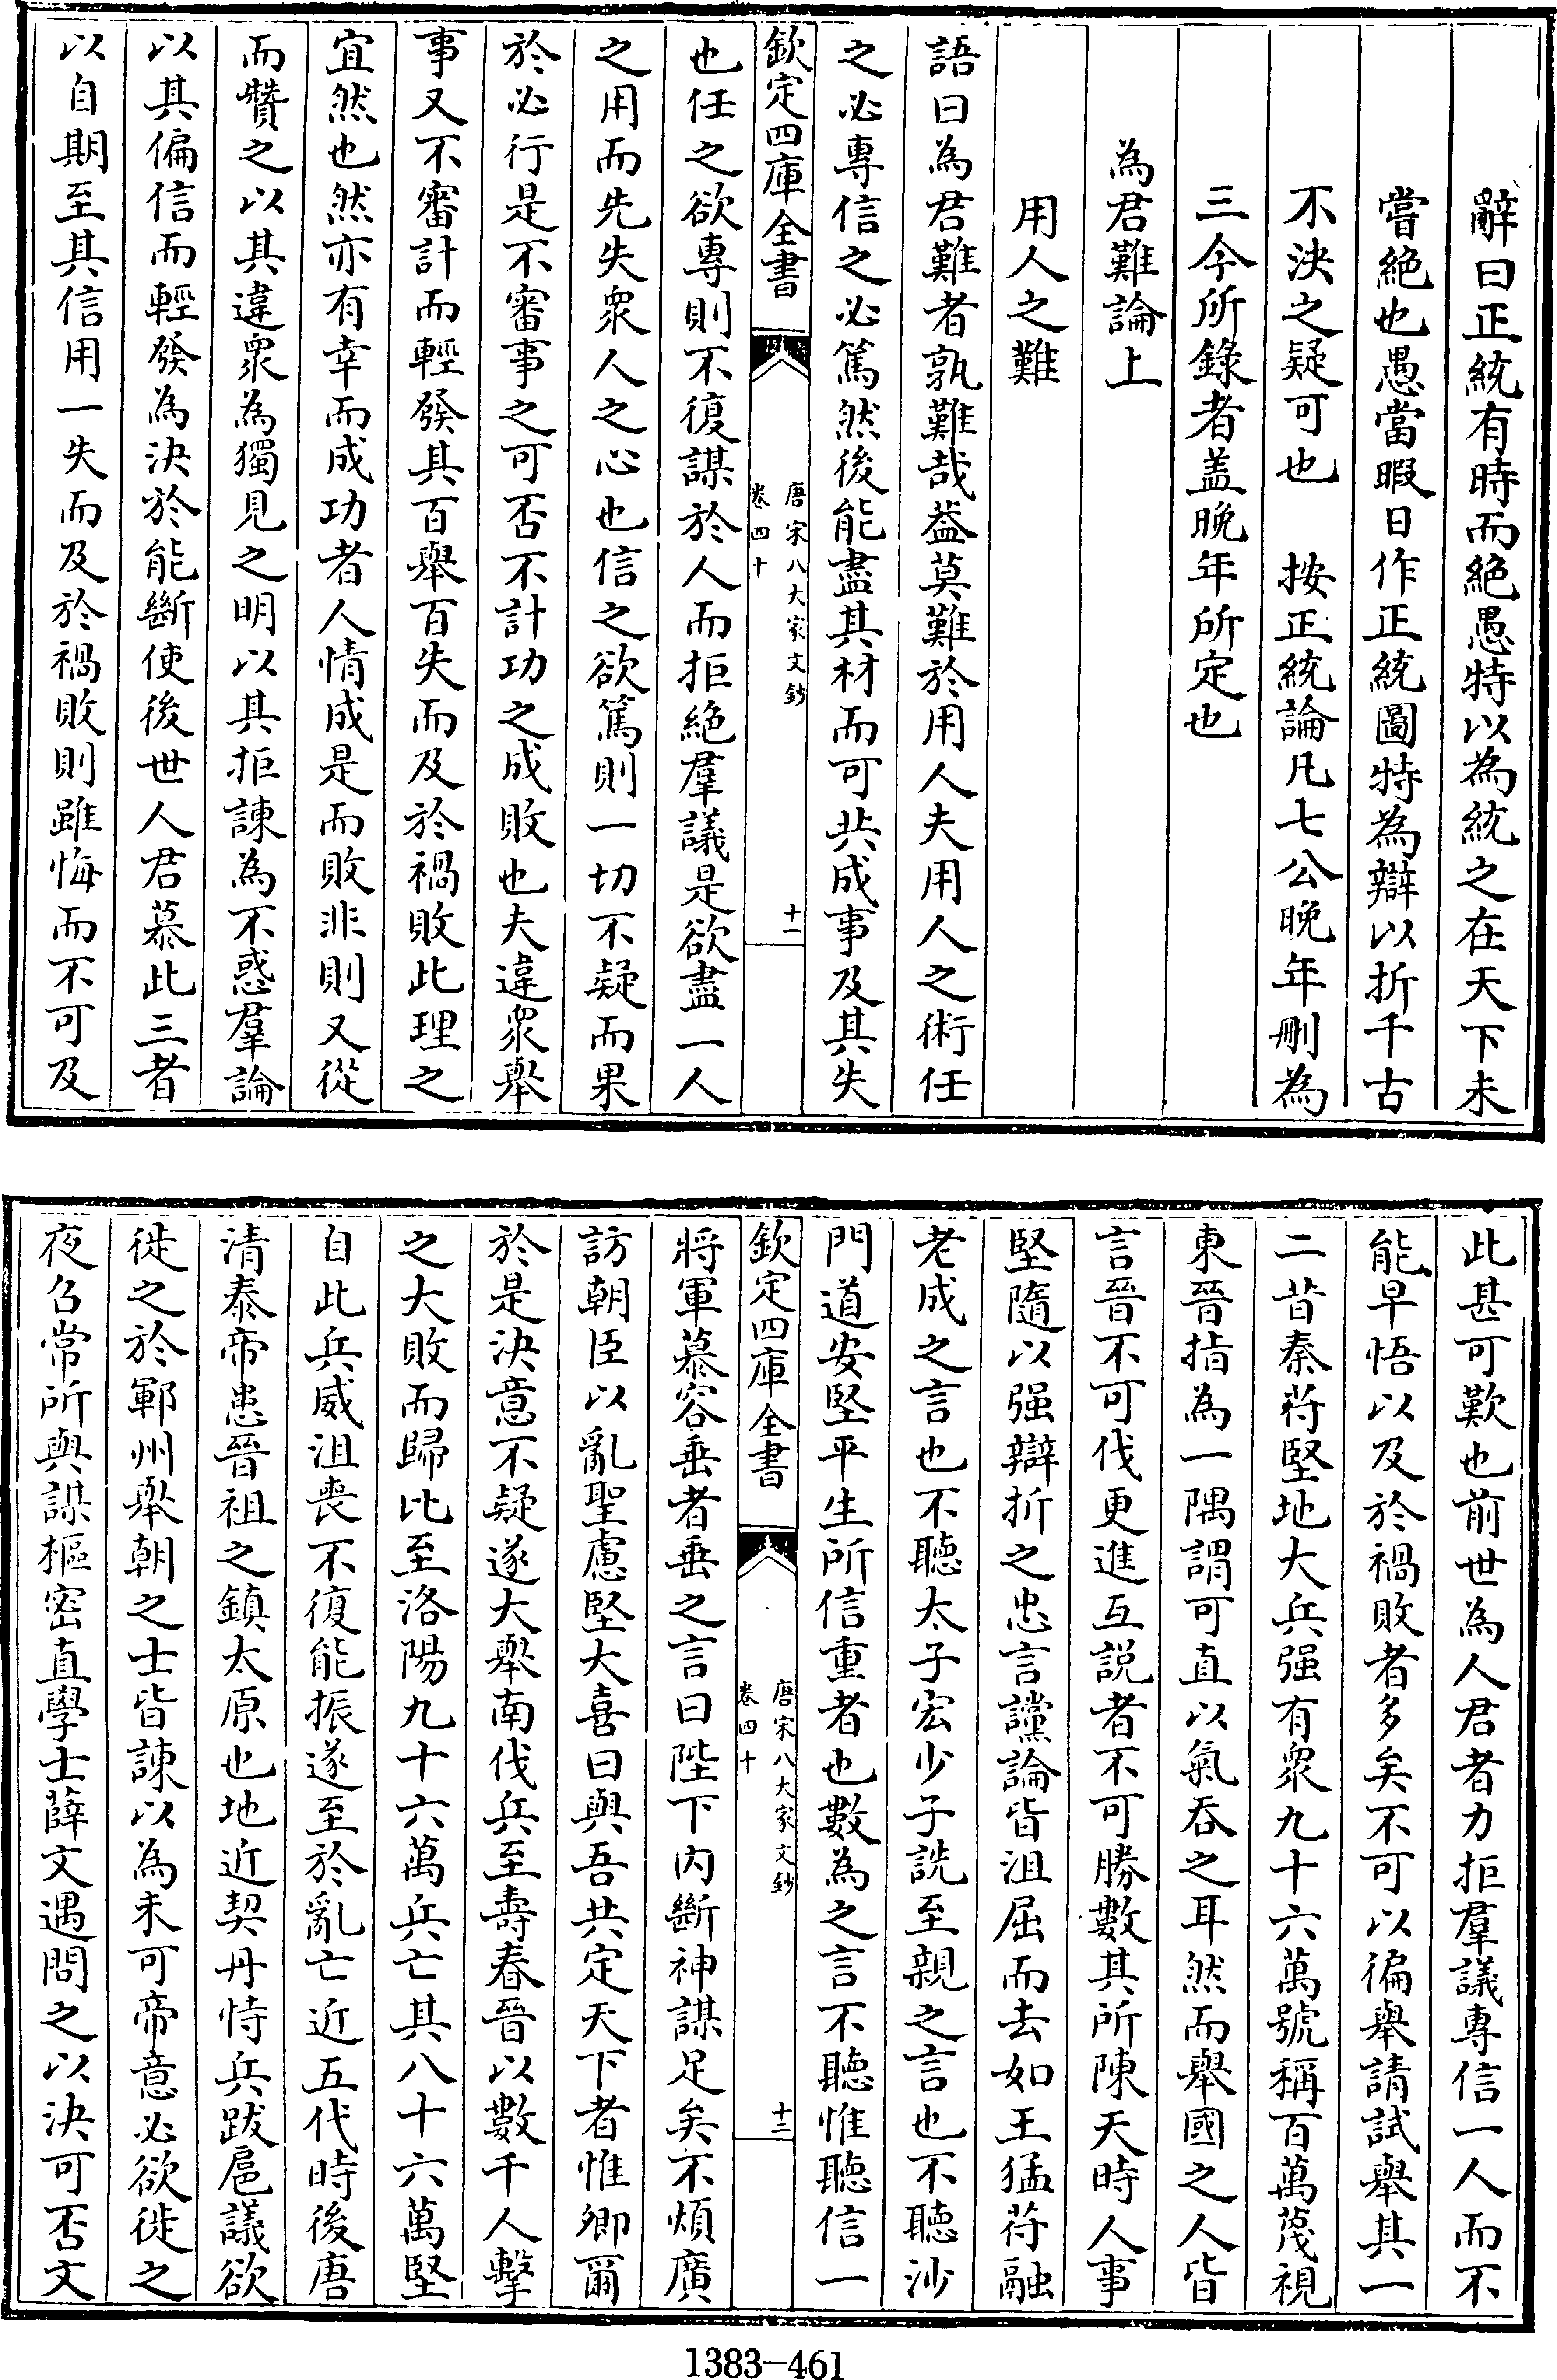 辭曰正統有時而絕愚特以為統之在天下未
嘗絕也愚當暇日作正統圖特為辯以折千古
不決之疑可也　按正統論凡七公晚年刪為
三今所錄者盖晚年所定也
為君難論上
用人之難
語曰為君難者孰難哉葢莫難於用人夫用人之術任
之必專信之必篤然後能盡其材而可共成事及其失
欽定四庫全書
唐宋八大家文鈔
卷四十
十一
也任之欲專則不復謀於人而拒絶羣議是欲盡一人
之用而先失衆人之心也信之欲篤則一切不疑而果
於必行是不審事之可否不計功之成敗也夫違衆舉
事又不審計而輕發其百舉百失而及於禍敗此理之
宜然也然亦有幸而成功者人情成是而敗非則又從
而贊之以其違衆為獨見之明以其拒諫為不惑羣論
以其偏信而輕發為決於能斷使後世人君慕此三者
以自期至其信用一失而及於禍敗則雖悔而不可及
此甚可歎也前世為人君者力拒羣議專信一人而不
能早悟以及於禍敗者多矣不可以徧舉請試舉其一
二昔秦苻堅地大兵强有衆九十六萬號稱百萬蔑視
東晉指為一隅謂可直以氣吞之耳然而舉國之人皆
言晉不可伐更進互説者不可勝數其所陳天時人事
堅隨以强辯折之忠言讜論皆沮屈而去如王猛苻融
老成之言也不聽太子宏少子詵至親之言也不聽沙
門道安堅平生所信重者也數為之言不聽惟聽信一
欽定四庫全書
唐宋八大家文鈔
卷四十
十二
將軍慕容垂者垂之言曰陛下内斷神謀足矣不煩廣
訪朝臣以亂聖慮堅大喜曰與吾共定天下者惟卿爾
於是決意不疑遂大舉南伐兵至壽春晉以數千人擊
之大敗而歸比至洛陽九十六萬兵亡其八十六萬堅
自此兵威沮喪不復能振遂至於亂亡近五代時後唐
清泰帝患晉祖之鎮太原也地近契丹恃兵跋扈議欲
徙之於鄆州舉朝之士皆諫以為未可帝意必欲徙之
夜召常所與謀樞密直學士薛文遇問之以決可否文
1383-461